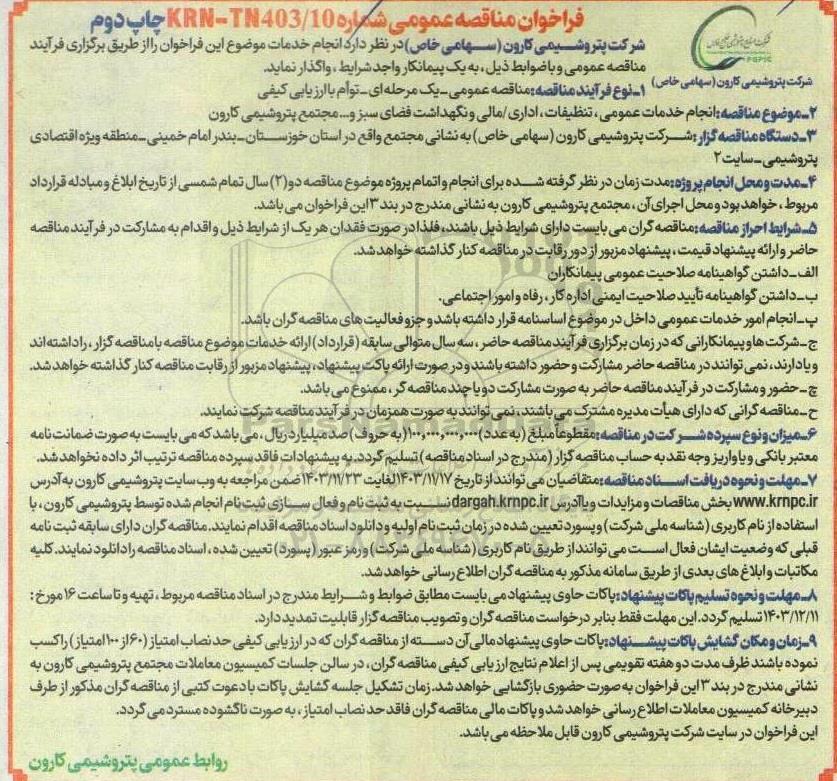 فراخوان مناقصه عمومی شماره KRN-TN403/10 چاپ دوم
شرکت پتروشیمی کارون (سهامی خاص) در نظر دارد انجام خدمات موضوع این فراخوان را از طریق برگزاری فرآیند
مناقصه عمومی و با ضوابط ذیل، به یک پیمانکار واجد شرایط، واگذار نماید.
PGPIC
شرکت پتروشیمی کارون (سهامی خاص)
۱ـ نوع فرآیند مناقصه: مناقصه عمومی ـ یک مرحله ای ـ توأم با ارزیابی کیفی
۲ـ موضوع مناقصه: انجام خدمات عمومی، تنظیفات، اداری/مالی و نگهداشت فضای سبز و... مجتمع پتروشیمی کارون
۳ـ دستگاه مناقصه گزار: شرکت پتروشیمی کارون (سهامی خاص) به نشانی مجتمع واقع در استان خوزستان ـ بندر امام خمینی ـ منطقه ویژه اقتصادی
پتروشیمی ـ سایت ۲
۴ـ مدت و محل انجام پروژه: مدت زمان در نظر گرفته شده برای انجام و اتمام پروژه موضوع مناقصه دو (۲) سال تمام شمسی از تاریخ ابلاغ و مبادله قرارداد
مربوط، خواهد بود و محل اجرای آن، مجتمع پتروشیمی کارون به نشانی مندرج در بند ۳ این فراخوان می باشد.
۵ـ شرایط احراز مناقصه: مناقصه گران می بایست دارای شرایط ذیل باشند، فلذا در صورت فقدان هر یک از شرایط ذیل و اقدام به مشارکت در فرآیند مناقصه
حاضر و ارائه پیشنهاد قیمت، پیشنهاد مزبور از دور رقابت در مناقصه کنار گذاشته خواهد شد.
الف ـ داشتن گواهینامه صلاحیت عمومی پیمانکاران
ب ـ داشتن گواهینامه تأیید صلاحیت ایمنی اداره کار، رفاه و امور اجتماعی.
پ ـ انجام امور خدمات عمومی داخل در موضوع اساسنامه قرار داشته باشد و جزو فعالیت های مناقصه گران باشد.
ج ـ شرکت ها و پیمانکارانی که در زمان برگزاری فرآیند مناقصه حاضر، سه سال متوالی سابقه (قرارداد) ارائه خدمات موضوع مناقصه با مناقصه گزار، را داشته اند
و یا دارند، نمی توانند در مناقصه حاضر مشارکت و حضور داشته باشند و در صورت ارائه پاکت پیشنهاد، پیشنهاد مزبور از رقابت مناقصه کنار گذاشته خواهد شد.
چ ـ حضور و مشارکت در فرآیند مناقصه حاضر به صورت مشارکت دو یا چند مناقصه گر، ممنوع می باشد.
ح ـ مناقصه گرانی که دارای هیأت مدیره مشترک می باشند، نمی توانند به صورت همزمان در فرآیند مناقصه شرکت نمایند.
۶ـ میزان و نوع سپرده شرکت در مناقصه: مقطوعاً مبلغ (به عدد) ۱۰۰,۰۰۰,۰۰۰,۰۰۰ (به حروف) صد میلیارد ریال، می باشد که می بایست به صورت ضمانت نامه
معتبر بانکی و یا واریز وجه نقد به حساب مناقصه گزار (مندرج در اسناد مناقصه) تسلیم گردد. به پیشنهادات فاقد سپرده مناقصه ترتیب اثر داده نخواهد شد.
۷ـ مهلت و نحوه دریافت اسناد مناقصه: متقاضیان می توانند از تاریخ ۱۴۰۳/۱۱/۱۷ لغایت ۱۴۰۳/۱۱/۲۳ ضمن مراجعه به وب سایت پتروشیمی کارون به آدرس
www.krnpc.ir بخش مناقصات و مزایدات و یا آدرس dargah.krnpc.ir نسبت به ثبت نام و فعال سازی ثبت نام انجام شده توسط پتروشیمی کارون، با
استفاده از نام کاربری (شناسه ملی شرکت) و پسورد تعیین شده در زمان ثبت نام اولیه و دانلود اسناد مناقصه اقدام نمایند. مناقصه گران دارای سابقه ثبت نامه
قبلی که وضعیت ایشان فعال است می توانند از طریق نام کاربری (شناسه ملی شرکت) و رمز عبور (پسورد) تعیین شده، اسناد مناقصه را دانلود نمایند. کلیه
مکاتبات و ابلاغ های بعدی از طریق سامانه مذکور به مناقصه گران اطلاع رسانی خواهد شد.
۸ـ مهلت و نحوه تسلیم پاکات پیشنهاد: پاکات حاوی پیشنهاد می بایست مطابق ضوابط و شرایط مندرج در اسناد مناقصه مربوط، تهیه و تا ساعت ۱۶ مورخ:
۱۴۰۳/۱۲/۱۱ تسلیم گردد. این مهلت فقط بنابر درخواست مناقصه گران و تصویب مناقصه گزار قابلیت تمدید دارد.
۹ـ زمان و مکان گشایش پاکات پیشنهاد: پاکات حاوی پیشنهاد مالی آن دسته از مناقصه گران که در ارزیابی کیفی حد نصاب امتیاز (۶۰ از ۱۰۰ امتیاز) را کسب
نموده باشند ظرف مدت دو هفته تقویمی پس از اعلام نتایج ارزیابی کیفی مناقصه گران، در سالن جلسات کمیسیون معاملات مجتمع پتروشیمی کارون به
نشانی مندرج در بند ۳ این فراخوان به صورت حضوری بازگشایی خواهد شد. زمان تشکیل جلسه گشایش پاکات با دعوت کتبی از مناقصه گران مذکور از طرف
دبیرخانه کمیسیون معاملات اطلاع رسانی خواهد شد و پاکات مالی مناقصه گران فاقد حد نصاب امتیاز، به صورت ناگشوده مسترد می گردد.
این فراخوان در سایت شرکت پتروشیمی کارون قابل ملاحظه می باشد.
روابط عمومی پتروشیمی کارون